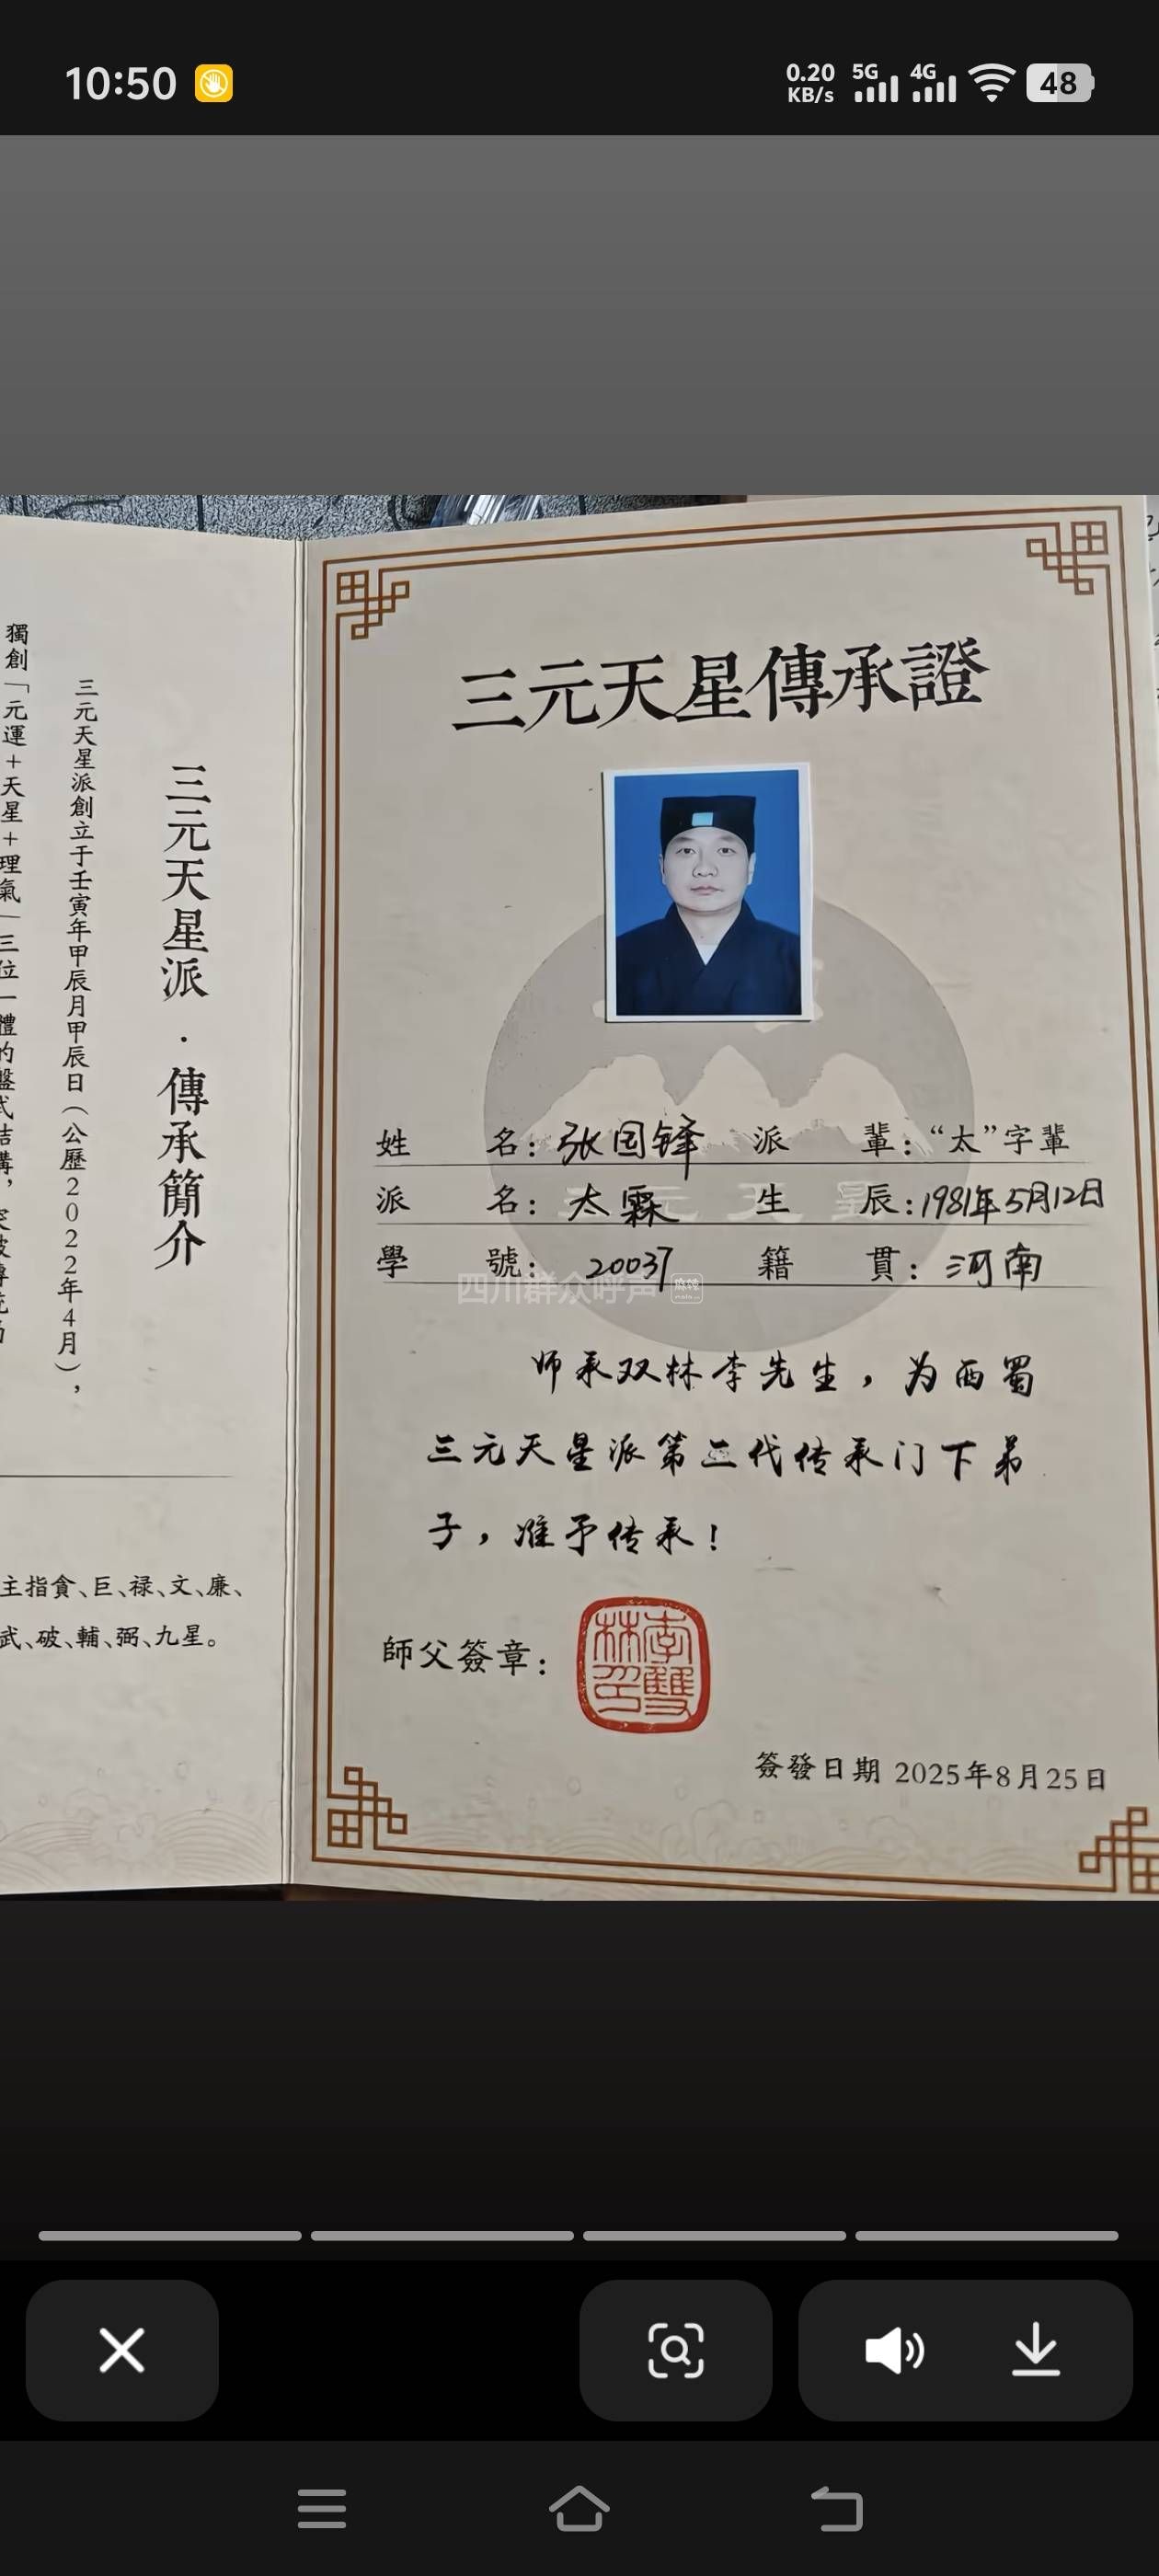 10:50
0.20 KB/s 5G 4G 48
三元天星傳承證
姓名：张国锋 派輩：“太”字輩
派名：太霖 生辰：1981年5月12日
學號：20037 籍貫：河南
四川群众呼声 麻辣
三元天星
师承双林李先生，为西蜀
三元天星派第二代传承门下弟
子，准予传承！
師父簽章：
李雙林印
簽發日期 2025年8月25日
三元天星派·傳承簡介
三元天星派創立于壬寅年甲辰月甲辰日（公歷2022年4月），
獨創「元運+天星+理氣」三位一體的盤式結構，突破傳統
主指貪、巨、禄、文、廉、
武、破、輔、弼、九星。